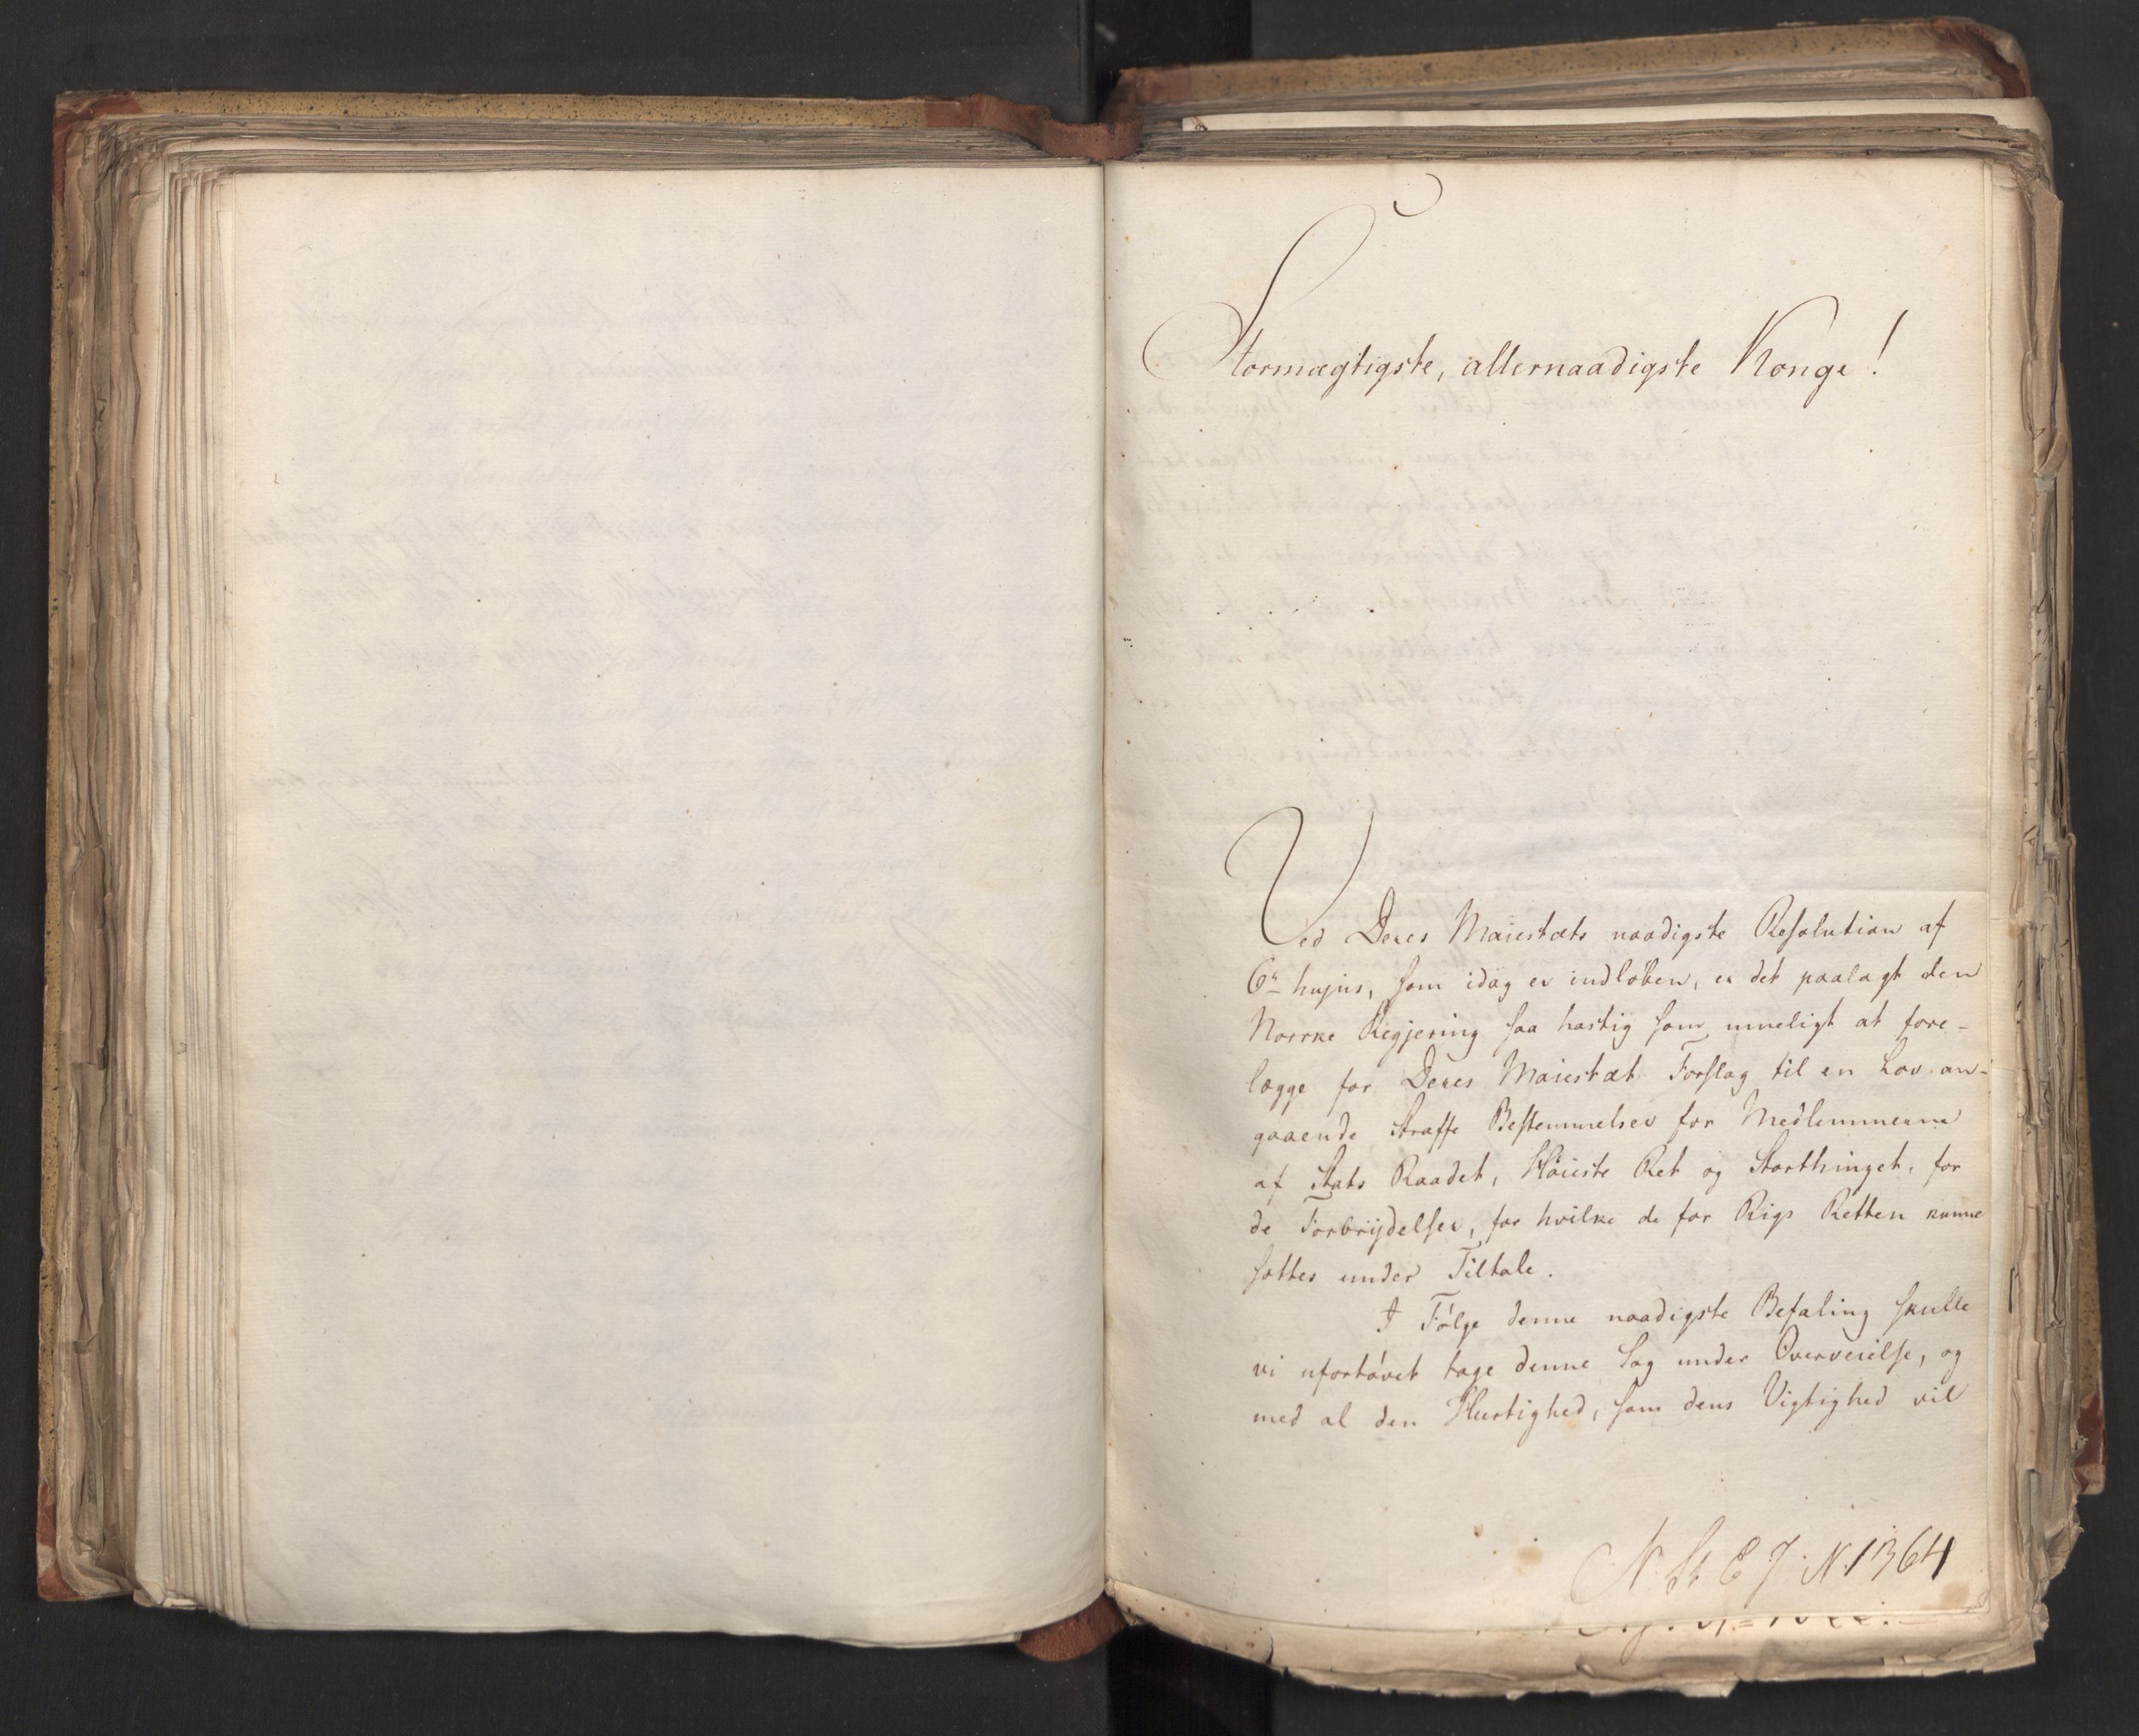 Stormægtigste, allernaadigste Konge!
Ved Deres Maiestæts naadigste Resolution af
6te hujus, som idag er indløben, er det paalagt den
Norske Regjering saa hastig som mueligt at fore-
lægge for Deres Maiestæt Forslag til en Lov an-
gaaende Straffe Bestemmelser for Medlemmerne
af Stats Raadet, Høieste Ret og Storthinget, for
de Forbrydelser, for hvilke de for Rigs Retten kunne
sættes under Tiltale.
I Følge denne naadigste Befaling skulle
vi ufortøvet tage denne Sag under Overveielse, og
med al den Hurtighed, som dens Vigtighed vil
N. St. E J. N. 1364